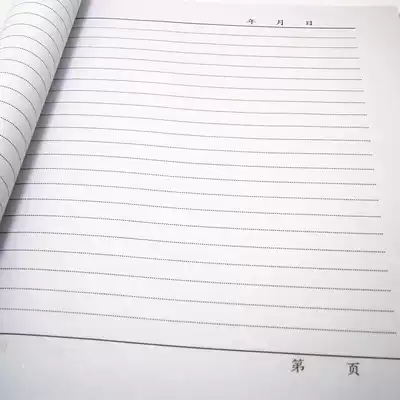 年 月 日
第 页